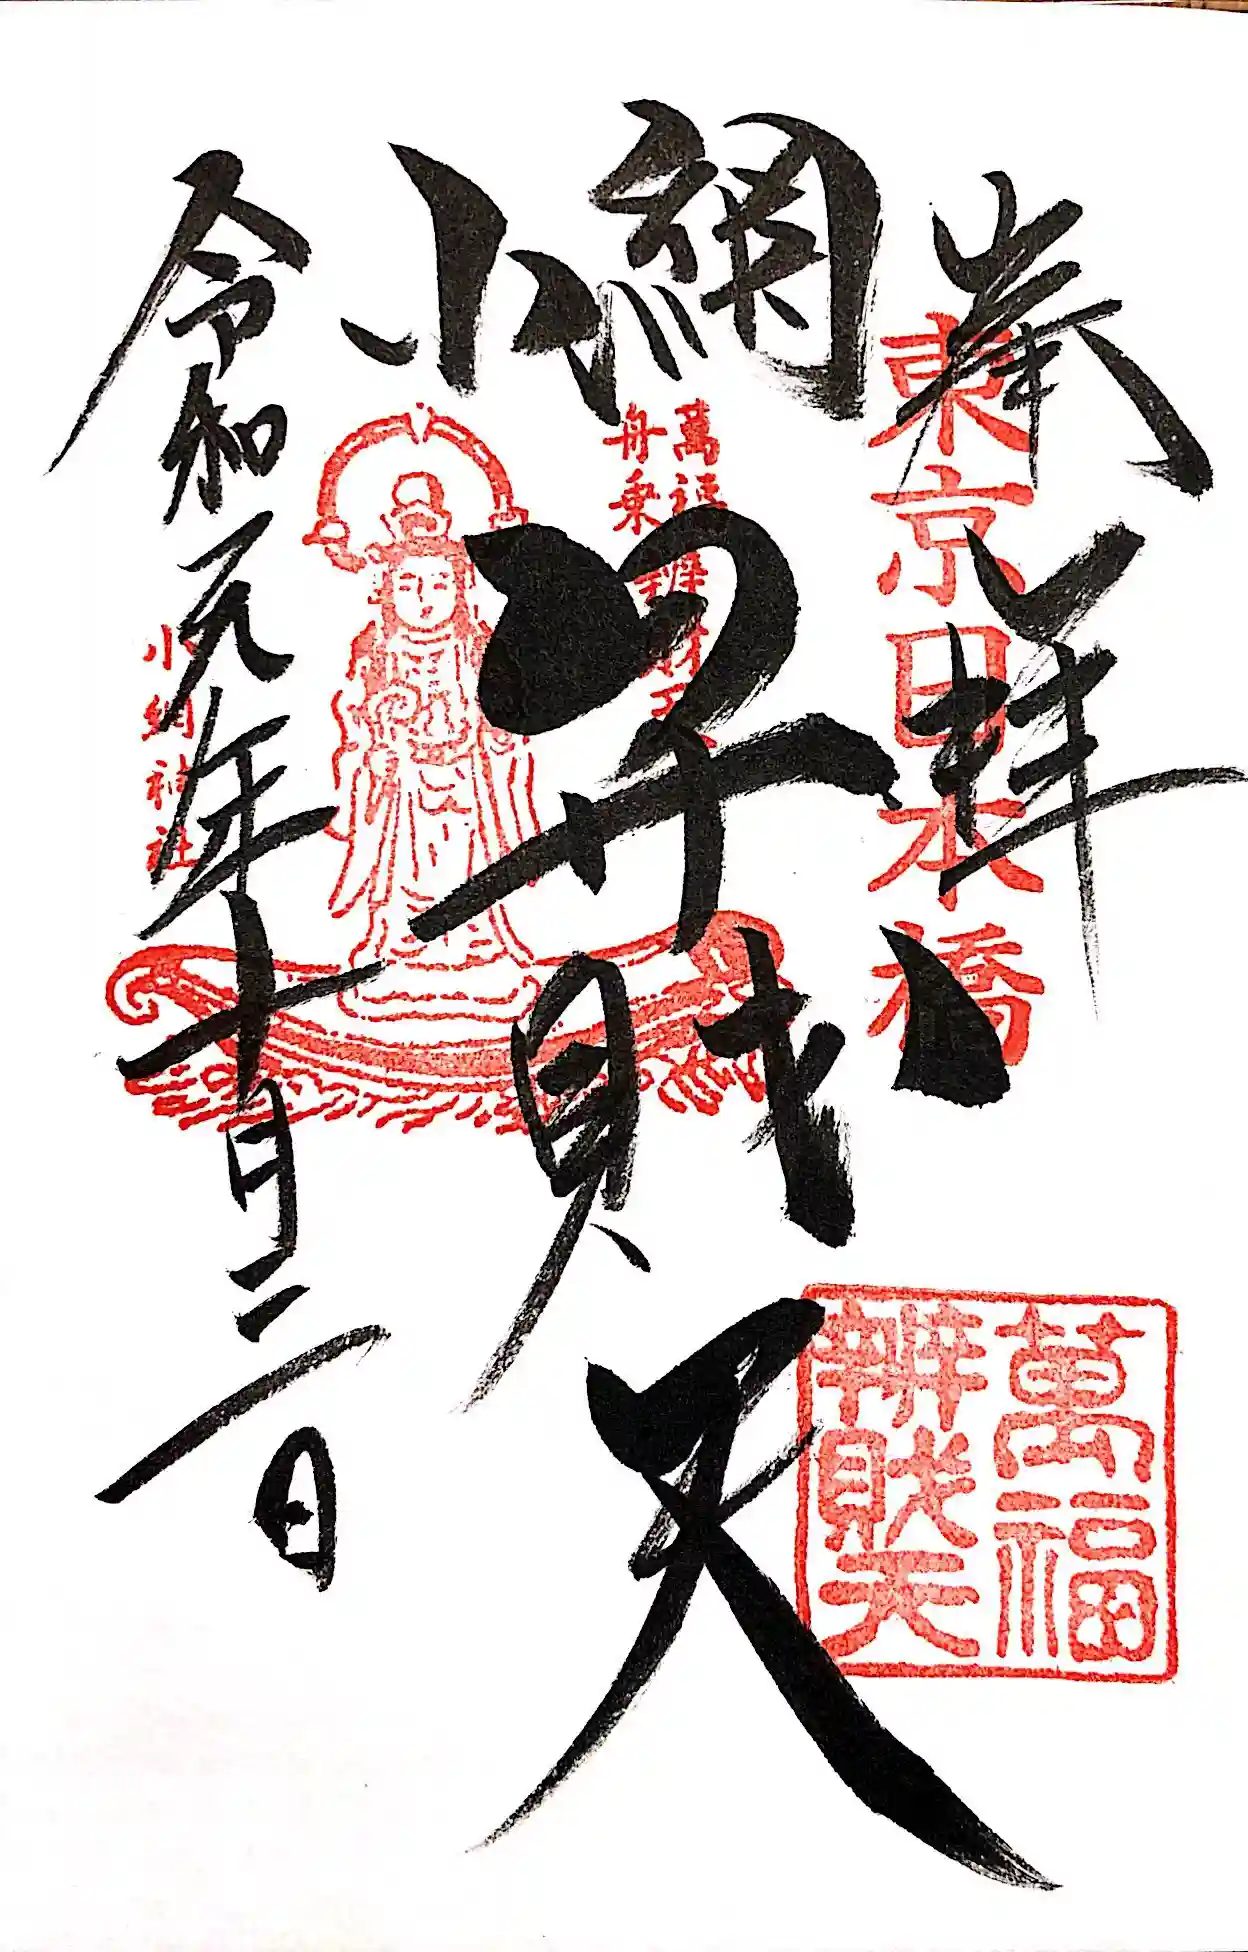 奉拝
東京日本橋
小網
弁財天
萬福
舟乗
辨財天
萬福
辨財天
令和元年十月三日
小網神社